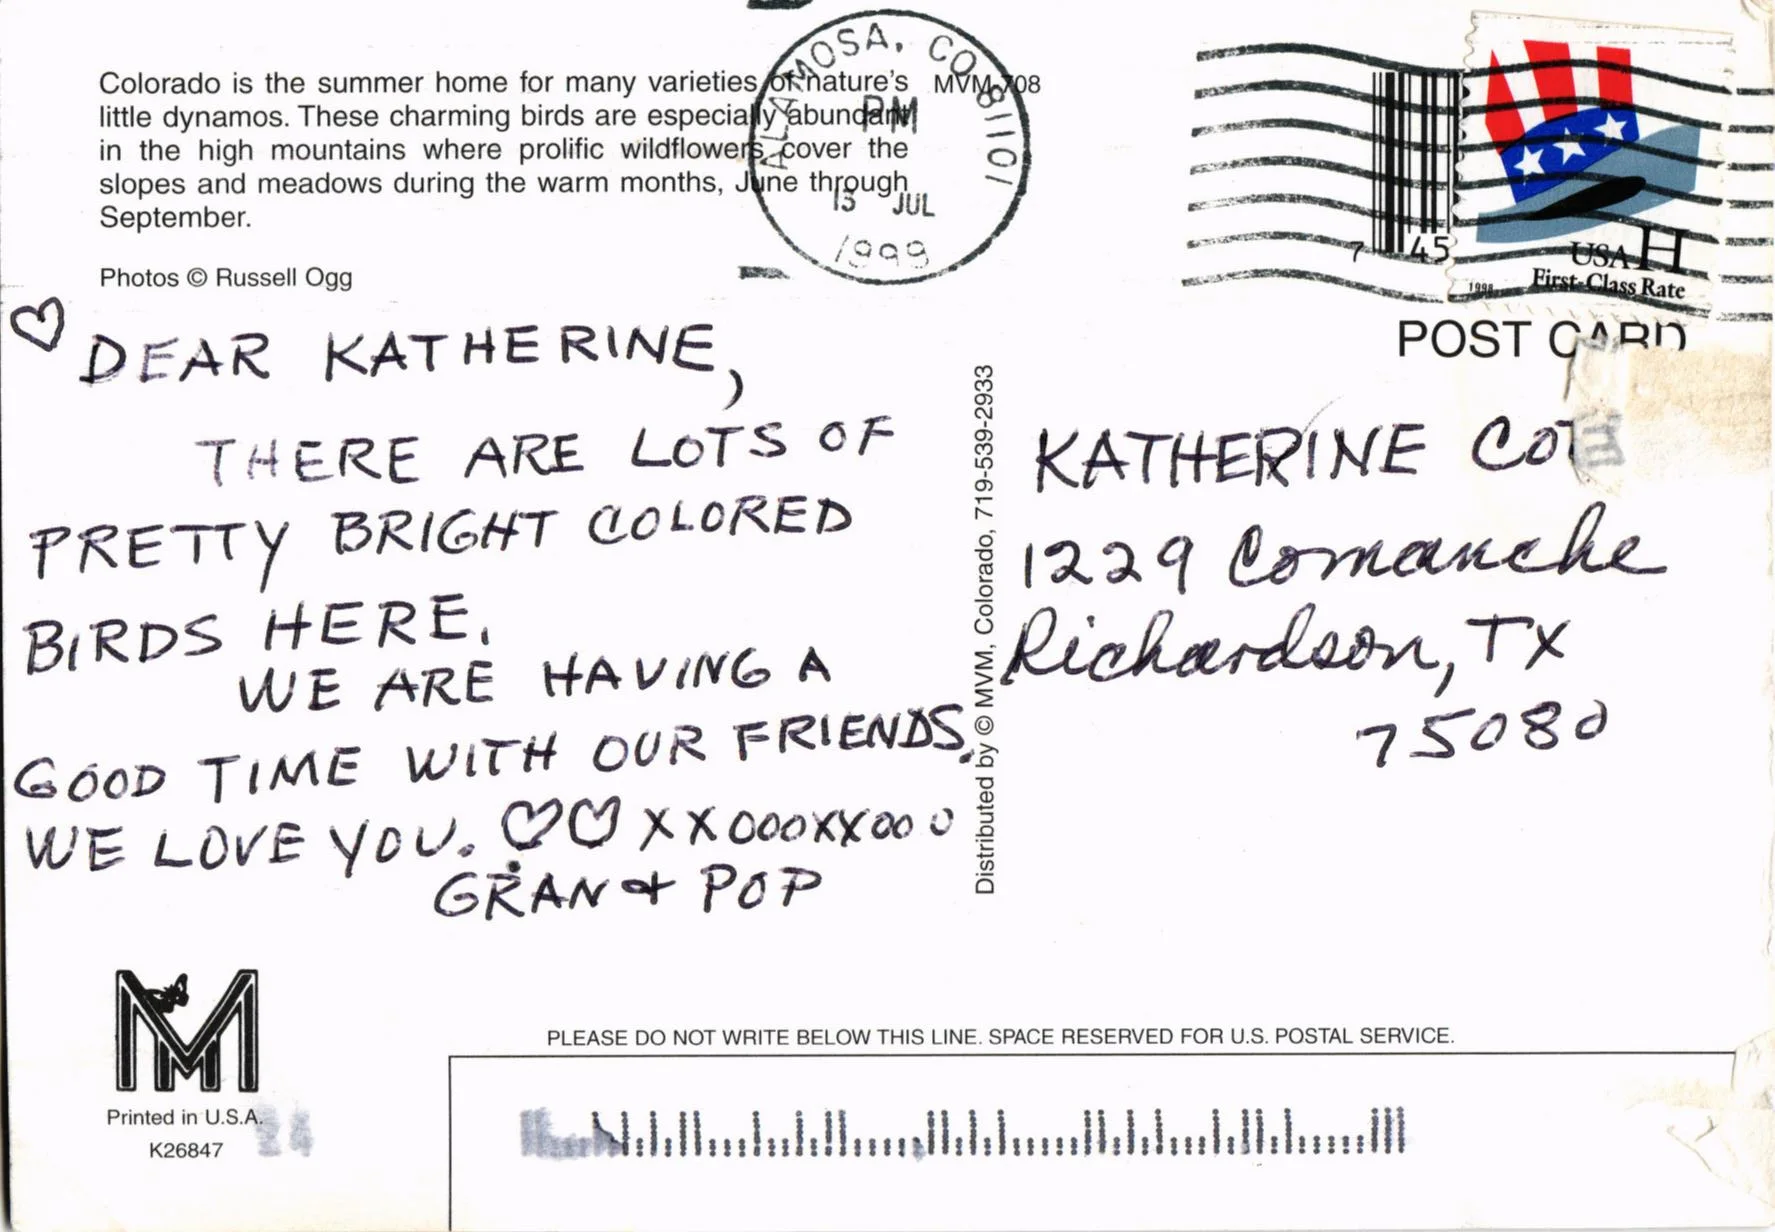 Colorado is the summer home for many varieties of nature's
little dynamos. These charming birds are especially abundant
in the high mountains where prolific wildflowers cover the
slopes and meadows during the warm months, June through
September.
MVM-708
Photos © Russell Ogg
ALAMOSA, CO 81101
PM
13 JUL
1999
7 45
USA H
First-Class Rate
1998
POST CARD
♡ DEAR KATHERINE,
THERE ARE LOTS OF
PRETTY BRIGHT COLORED
BIRDS HERE.
WE ARE HAVING A
GOOD TIME WITH OUR FRIENDS.
WE LOVE YOU. ♡♡ XXOOOXXOOO
GRAN + POP
Distributed by © MVM, Colorado, 719-539-2933
KATHERINE
1229 Comanche
Richardson, TX
75080
MM
Printed in U.S.A.
K26847
24
PLEASE DO NOT WRITE BELOW THIS LINE. SPACE RESERVED FOR U.S. POSTAL SERVICE.